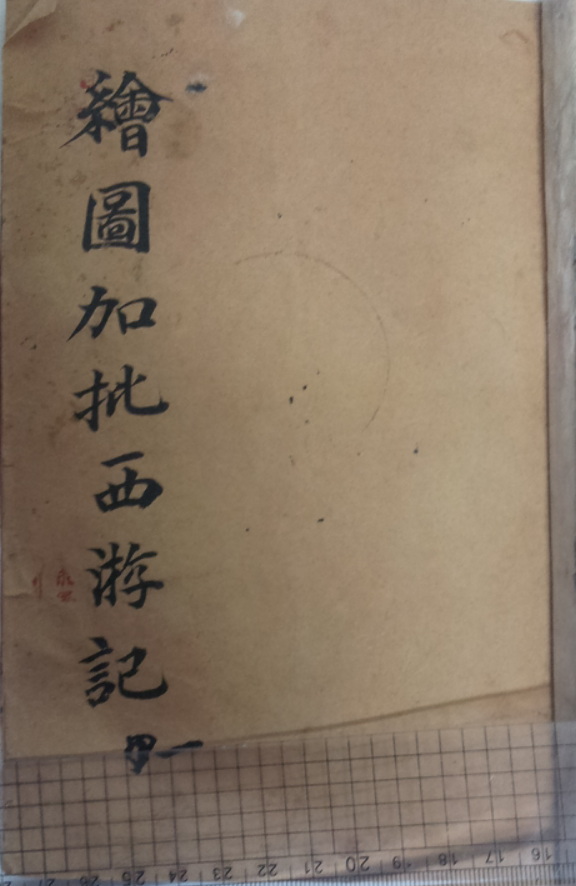 繪圖加批西游記
16 17 18 19 20 21 22 23 24 25 26 27